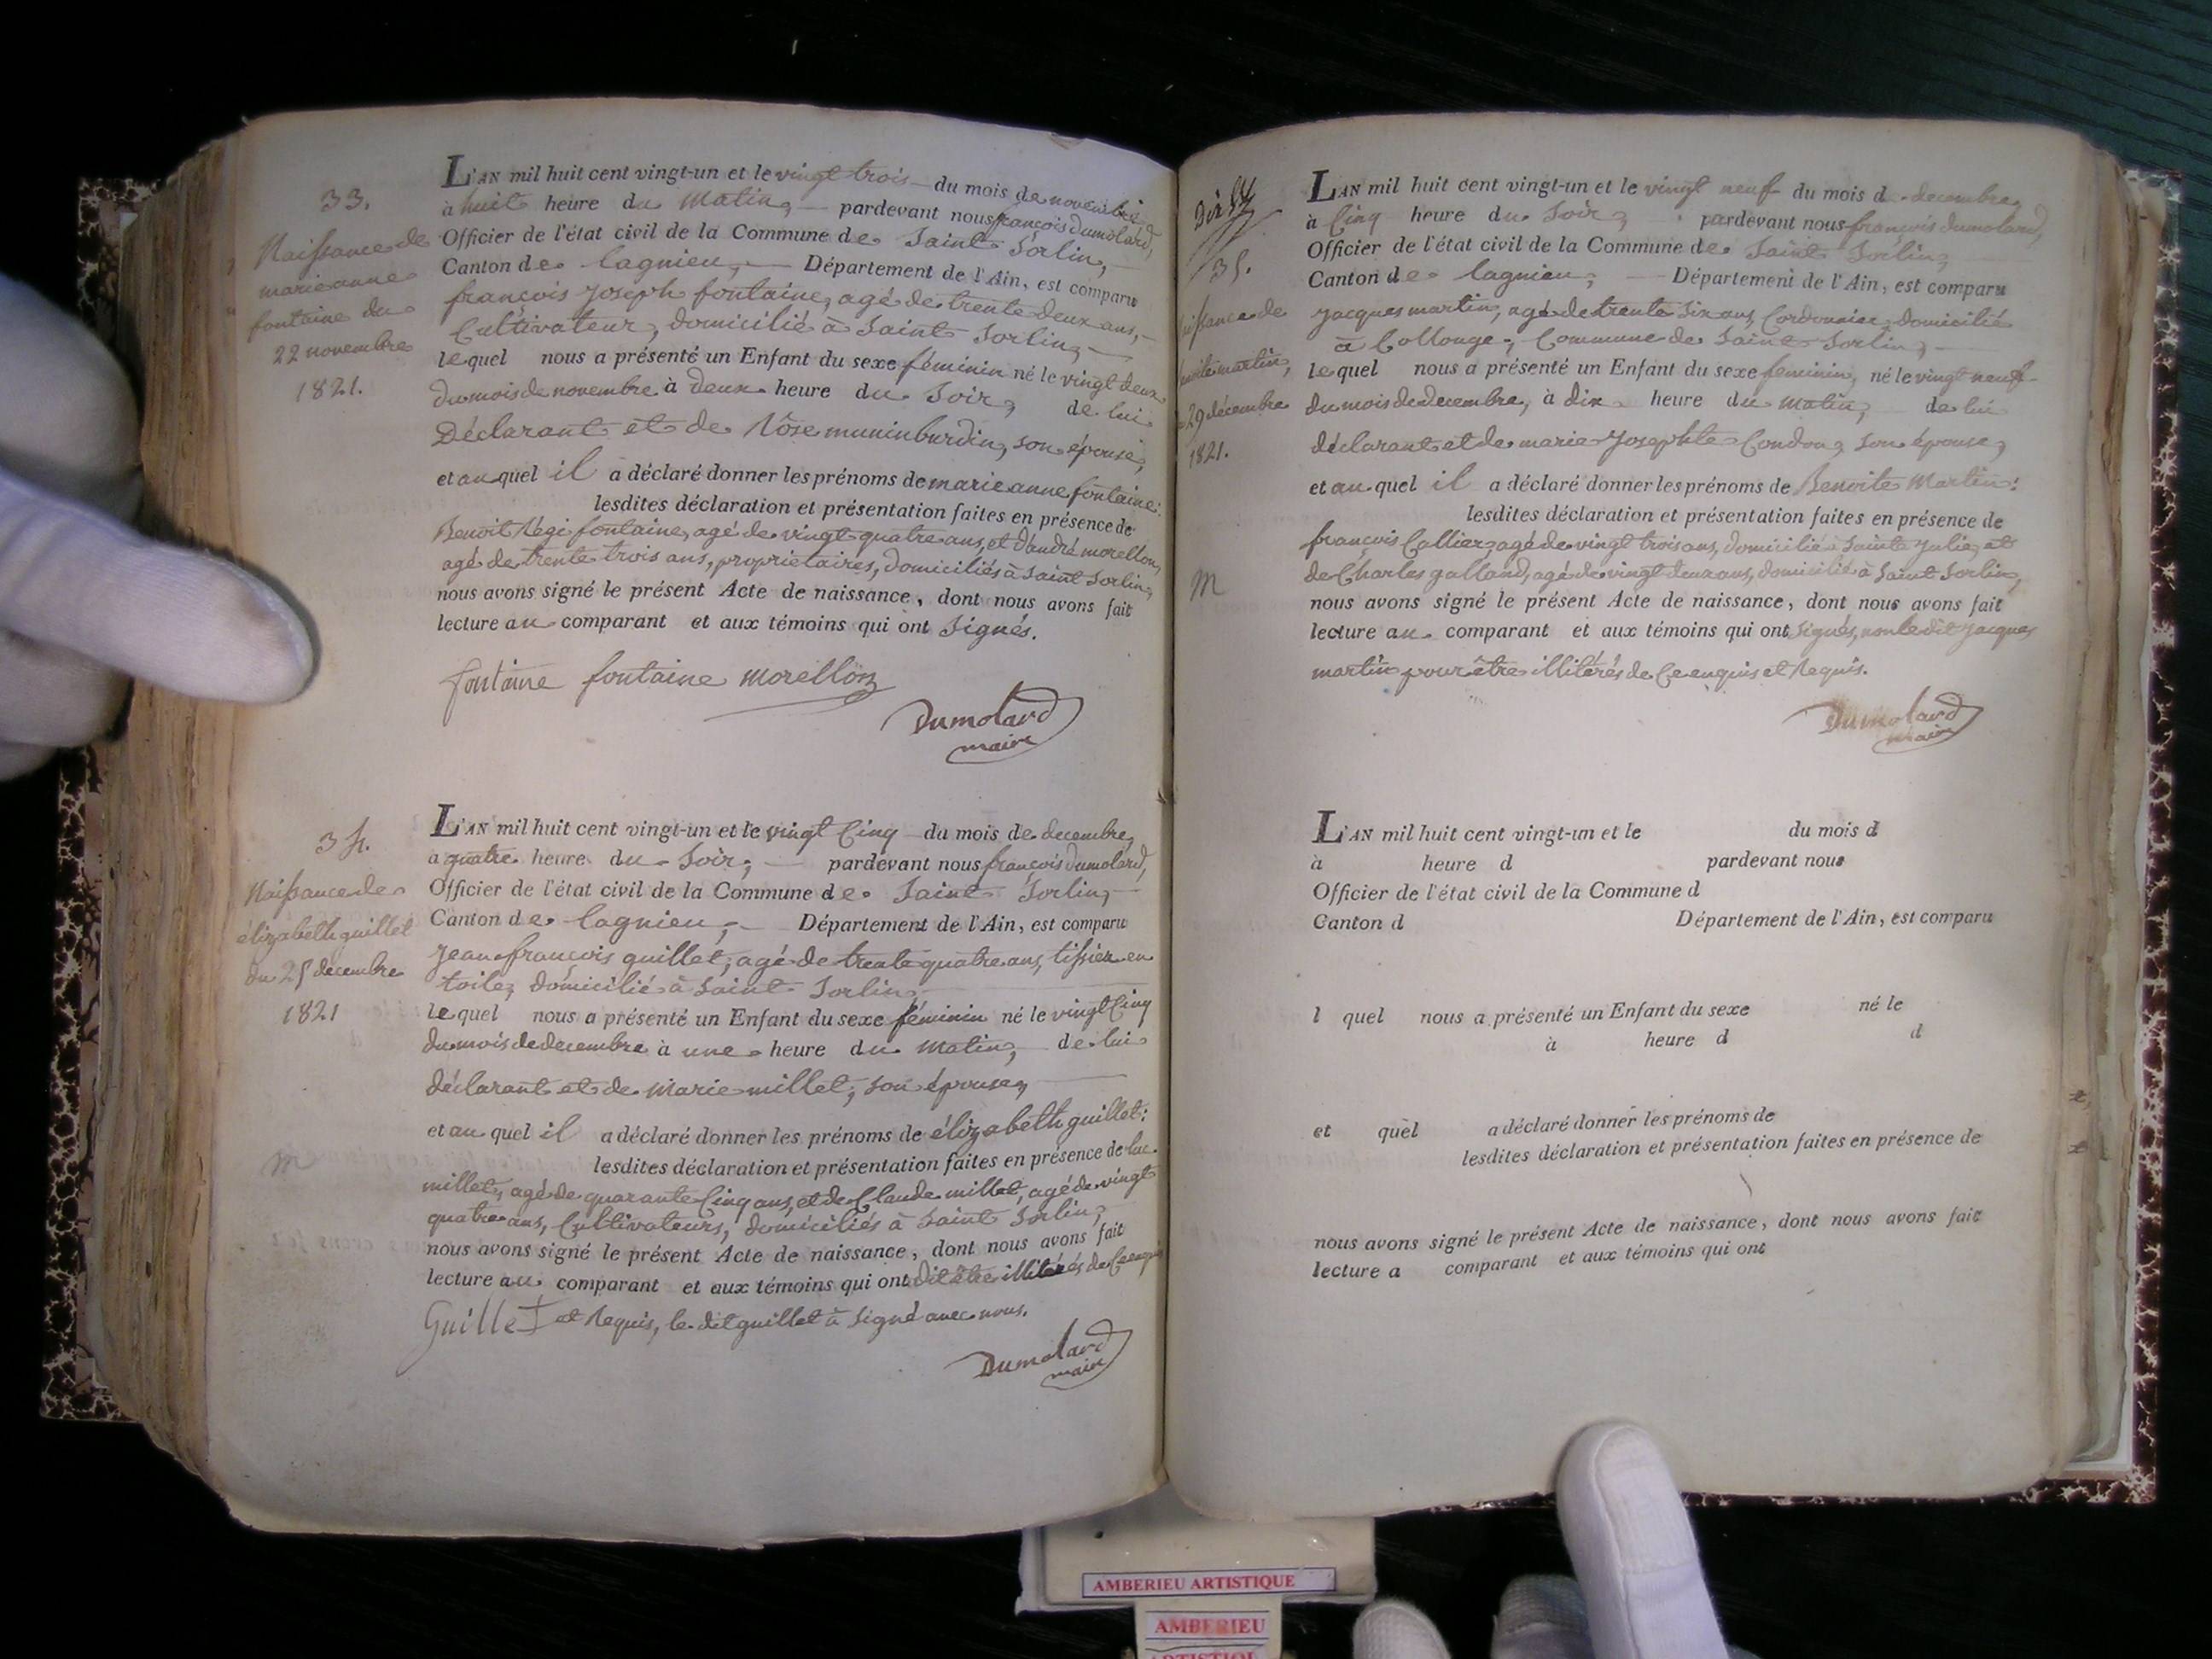 33.
Naissance de
marie anne
fontaine du
22 novembre
1821.
L'AN mil huit cent vingt-un et le vingt trois du mois de novembre
à huit heure du Matin, pardevant nous françois dumolard,
Officier de l'état civil de la Commune de Saint Sorlin,
Canton de lagnieu, Département de l'Ain, est comparu
françois Joseph fontaine, agé de trente deux ans,
Cultivateur, domicilié à Saint Sorlin,
lequel nous a présenté un Enfant du sexe féminin né le vingt deux
du mois de novembre à deux heure du Soir, de lui
Déclarant et de Rôse muninburdin, son épouse,
et au quel il a déclaré donner les prénoms de marie anne fontaine:
lesdites déclaration et présentation faites en présence de
Benoit Régi fontaine, agé de vingt quatre ans, et d'andré morellon,
agé de trente trois ans, propriétaires, domiciliés à Saint Sorlin,
nous avons signé le présent Acte de naissance, dont nous avons fait
lecture au comparant et aux témoins qui ont Signés.
fontaine fontaine morellon
Dumolard
maire
34.
Naissance de
élizabeth guillet
du 25 décembre
1821
L'AN mil huit cent vingt-un et le vingt Cinq du mois de decembre,
a quatre heure du Soir, pardevant nous françois dumolard,
Officier de l'état civil de la Commune de Saint Sorlin,
Canton de lagnieu, Département de l'Ain, est comparu
Jean françois guillet, agé de trente quatre ans, tissier en
toile, domicilié à Saint Sorlin,
lequel nous a présenté un Enfant du sexe féminin né le vingt Cinq
du mois de decembre à une heure du Matin, de lui
déclarant et de Marie millet, son épouse,
et au quel il a déclaré donner les prénoms de élizabeth guillet:
lesdites déclaration et présentation faites en présence de luc
M
millet, agé de quarante Cinq ans, et de Claude millet, agé de vingt
quatre ans, Cultivateurs, domiciliés à Saint Sorlin,
nous avons signé le présent Acte de naissance, dont nous avons fait
lecture au comparant et aux témoins qui ont dit être illitérés de Ce enquis
Guillet et Requis, le dit guillet à Signé avec nous.
Dumolard
maire
35.
issance de
oite martin,
29 décembre
1821.
L'AN mil huit cent vingt-un et le vingt neuf du mois d decembre,
à Cinq heure du Soir, pardevant nous françois dumolard,
Officier de l'état civil de la Commune de Saint Sorlin,
Canton de lagnieu, Département de l'Ain, est comparu
Jacques martin, agé de trente Six ans, Cordonnier, domicilié
à Collonge, Commune de Saint Sorlin,
lequel nous a présenté un Enfant du sexe feminin, né le vingt neuf
du mois de decembre, à dix heure du matin, de lui
déclarant et de marie Josephte Condon, son épouse,
et au quel il a déclaré donner les prénoms de Benoite Martin:
lesdites déclaration et présentation faites en présence de
françois Callier, agé de vingt trois ans, domicilié à Sainte Julie, et
M
de Charles galland, agé de vingt deux ans, domicilié à Saint Sorlin,
nous avons signé le présent Acte de naissance, dont nous avons fait
lecture au comparant et aux témoins qui ont Signés, non le dit Jacques
martin pour être illitérés de Ce enquis et Requis.
Dumolard
maire
L'AN mil huit cent vingt-un et le du mois d
à heure d pardevant nous
Officier de l'état civil de la Commune d
Canton d Département de l'Ain, est comparu
l quel nous a présenté un Enfant du sexe né le
à heure d d
et quel a déclaré donner les prénoms de
lesdites déclaration et présentation faites en présence de
nous avons signé le présent Acte de naissance, dont nous avons fait
lecture a comparant et aux témoins qui ont
AMBERIEU ARTISTIQUE
AMBERIEU
ARTISTIQUE